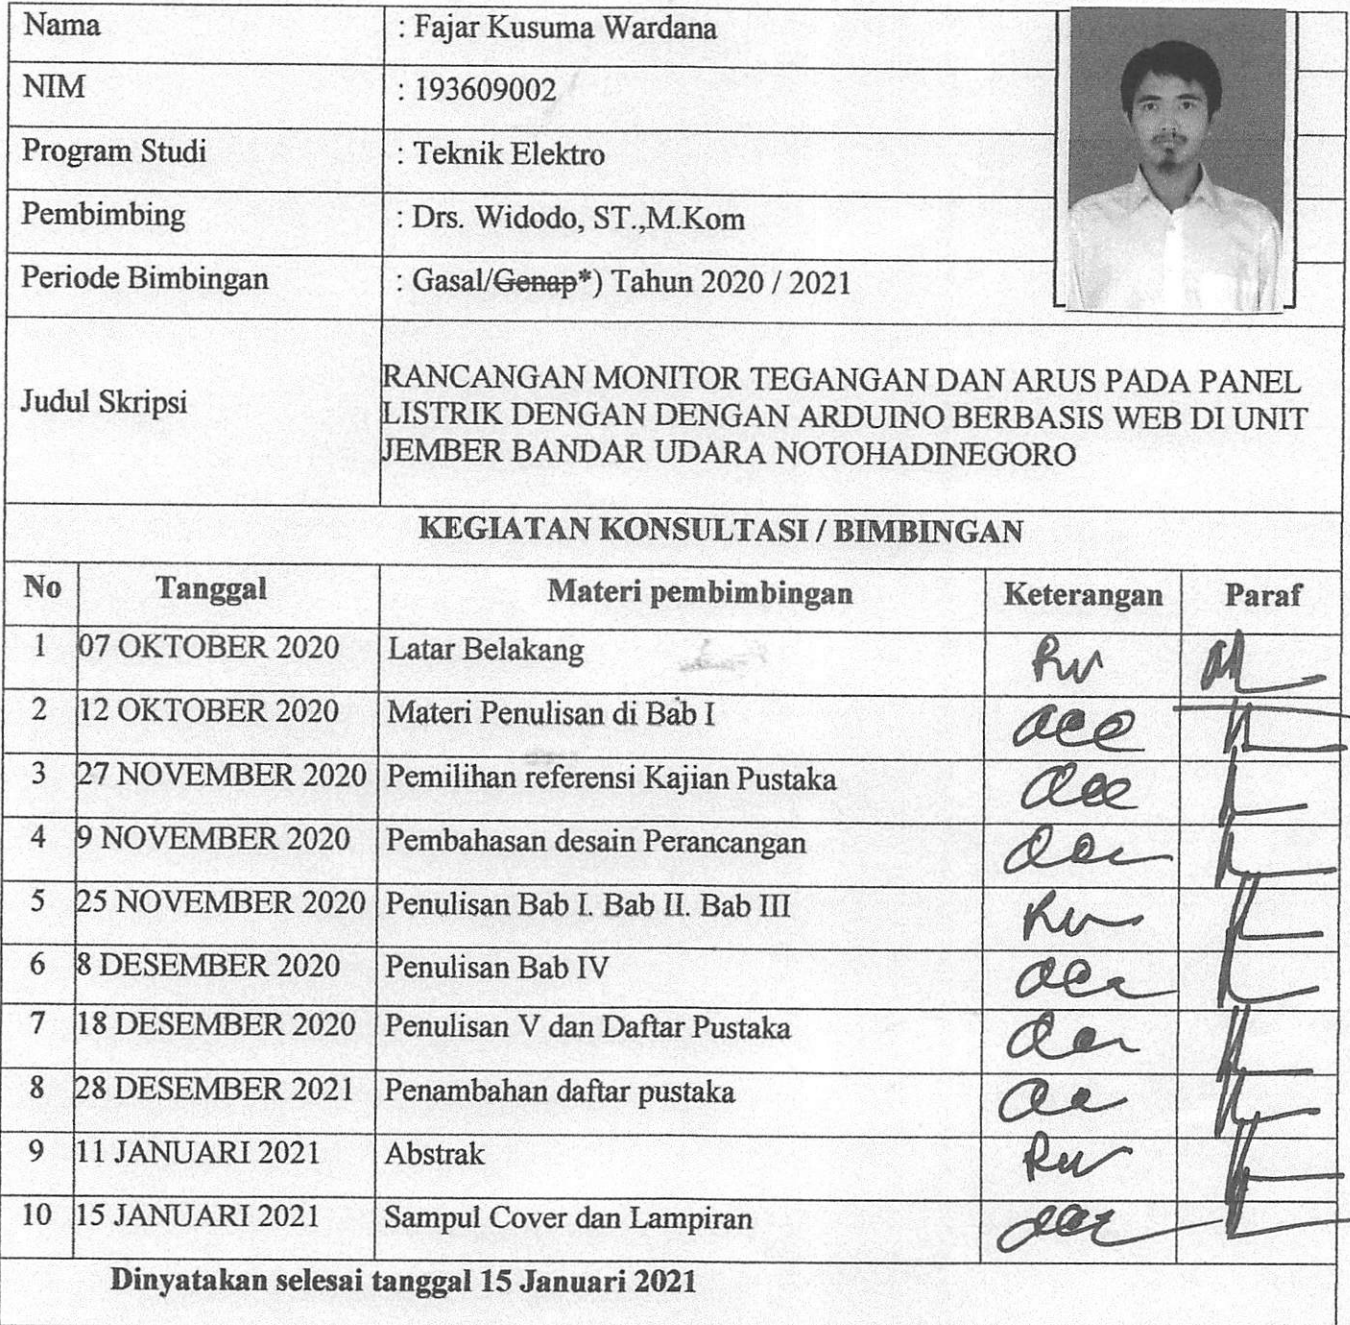 Nama : Fajar Kusuma Wardana
NIM : 193609002
Program Studi : Teknik Elektro
Pembimbing : Drs. Widodo, ST.,M.Kom
Periode Bimbingan : Gasal/Genap*) Tahun 2020 / 2021
Judul Skripsi
RANCANGAN MONITOR TEGANGAN DAN ARUS PADA PANEL
LISTRIK DENGAN DENGAN ARDUINO BERBASIS WEB DI UNIT
JEMBER BANDAR UDARA NOTOHADINEGORO
KEGIATAN KONSULTASI / BIMBINGAN
No Tanggal Materi pembimbingan Keterangan Paraf
1 07 OKTOBER 2020 Latar Belakang
2 12 OKTOBER 2020 Materi Penulisan di Bab I
3 27 NOVEMBER 2020 Pemilihan referensi Kajian Pustaka
4 9 NOVEMBER 2020 Pembahasan desain Perancangan
5 25 NOVEMBER 2020 Penulisan Bab I. Bab II. Bab III
6 8 DESEMBER 2020 Penulisan Bab IV
7 18 DESEMBER 2020 Penulisan V dan Daftar Pustaka
8 28 DESEMBER 2021 Penambahan daftar pustaka
9 11 JANUARI 2021 Abstrak
10 15 JANUARI 2021 Sampul Cover dan Lampiran
Dinyatakan selesai tanggal 15 Januari 2021